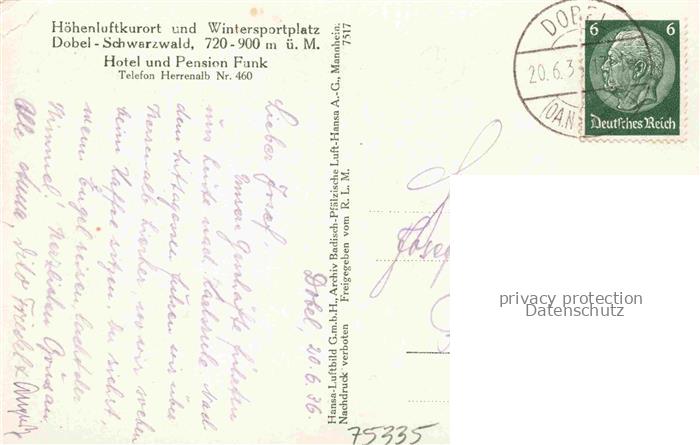 Höhenluftkurort und Wintersportplatz
Dobel - Schwarzwald, 720 - 900 m ü. M.
Hotel und Pension Funk
Telefon Herrenalb Nr. 460
Dobel, 20.6.36
Lieber Josef.
Unsere Geschäfte führten
uns heute nach Karlsruhe Bad
Herrenalb hierher, wo wir
beim Kaffee sitzen. Du siehst,
wenn Engel reisen lacht der
Himmel! Herzlichen Gruss an
Alle Anna, Friedel &
Hansa-Luftbild G.m.b.H., Archiv Badisch-Pfälzische Luft-Hansa A.-G., Mannheim.
Nachdruck verboten Freigegeben vom R. L. M. 7517
DOBEL
20.6.3
(OA.N
6 6
Deutsches Reich
privacy protection
Datenschutz
75335